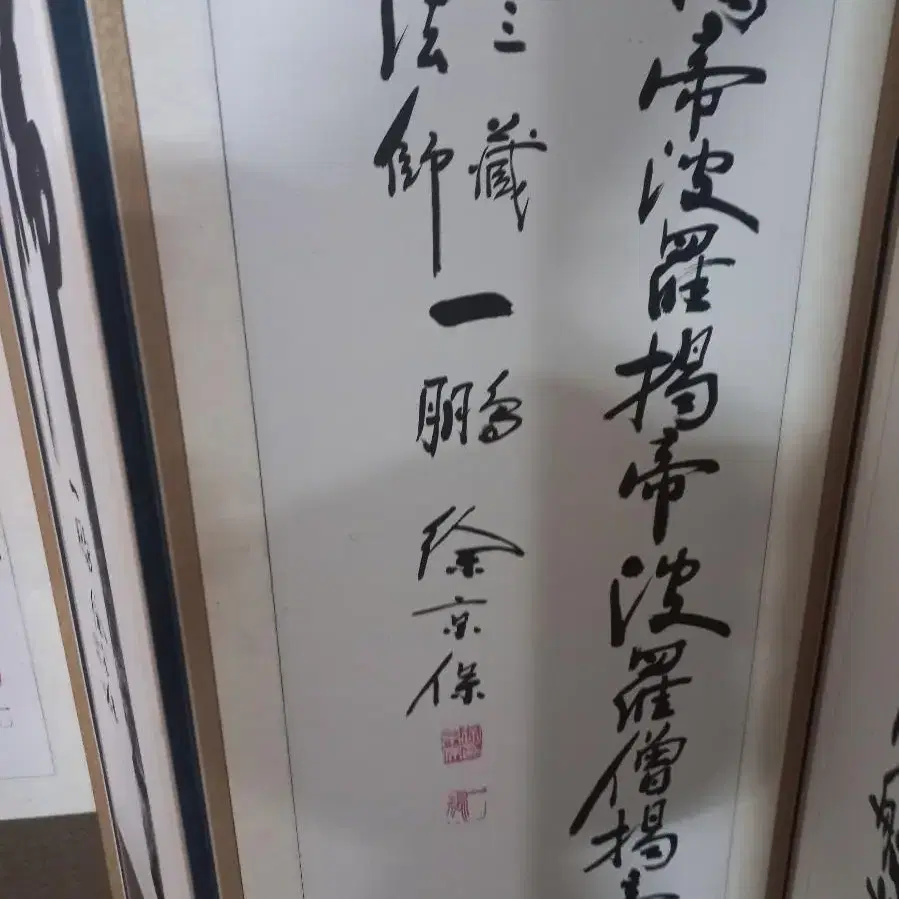 帝波羅揭帝波羅僧揭
三藏
法師
一鵬 徐京保